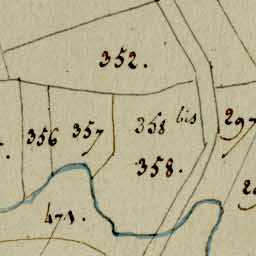 352.
356
357
358 bis
297
358.
471.